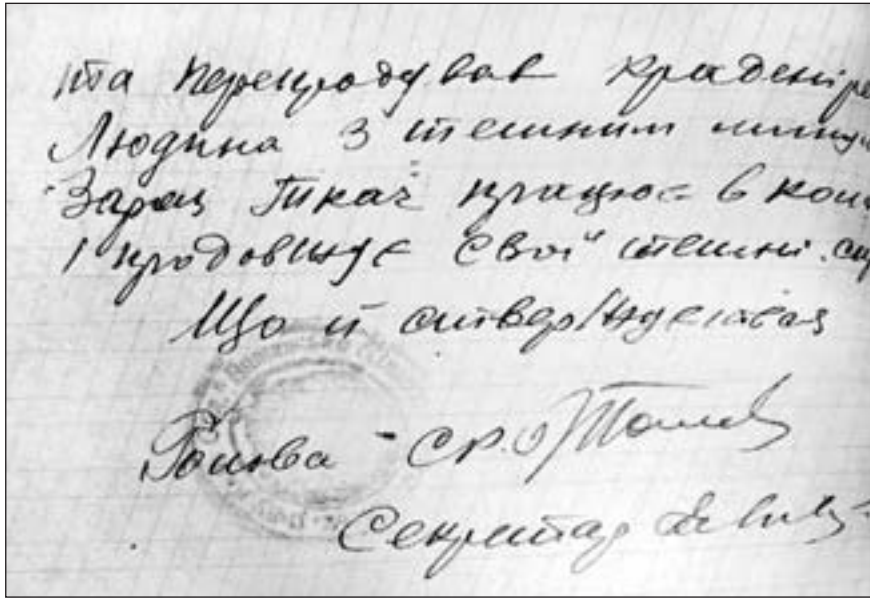 та перепродував крадені ре
Людина з темним мину
Зараз Ткач працює в кол
і продовжує свої темні. сп
Що й стверджується
Голова С/Р.
Секретар